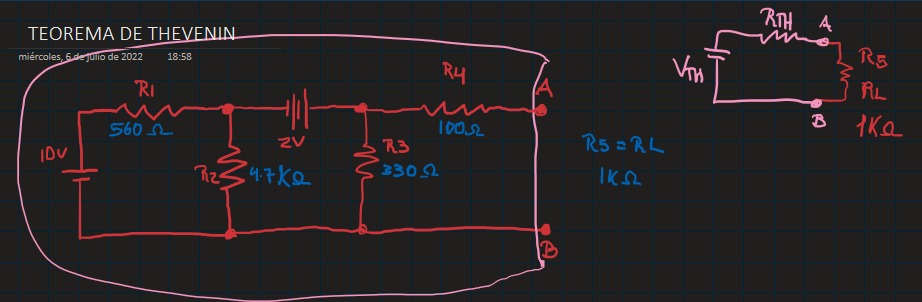 TEOREMA DE THEVENIN
miércoles, 6 de julio de 2022 18:58
R1
560 Ω
10V
R2
4.7 KΩ
2V
R3
330 Ω
R4
100 Ω
A
B
R5 = RL
1KΩ
RTH
A
VTH
R5
RL
1KΩ
B